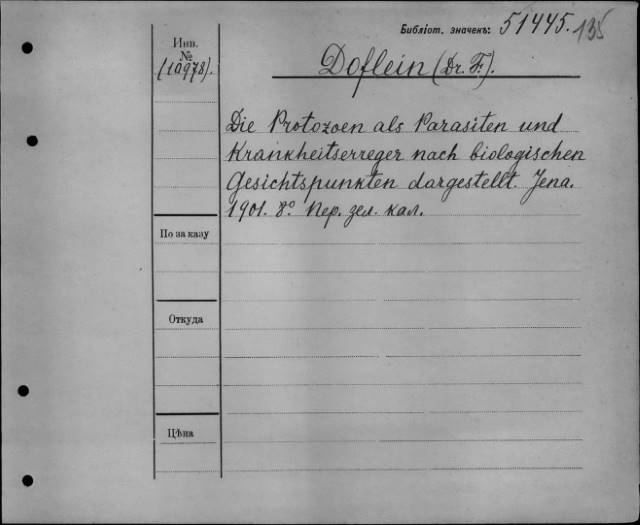 Библіот. значекъ: 51445. 135
Инв.
№
(10978).
Doflein (Dr. F.).
Die Protozoen als Parasiten und
Krankheitserreger nach biologischen
Gesichtspunkten dargestellt. Jena.
1901. 8º. Пер. зел. кал.
По заказу
Откуда
Цѣна